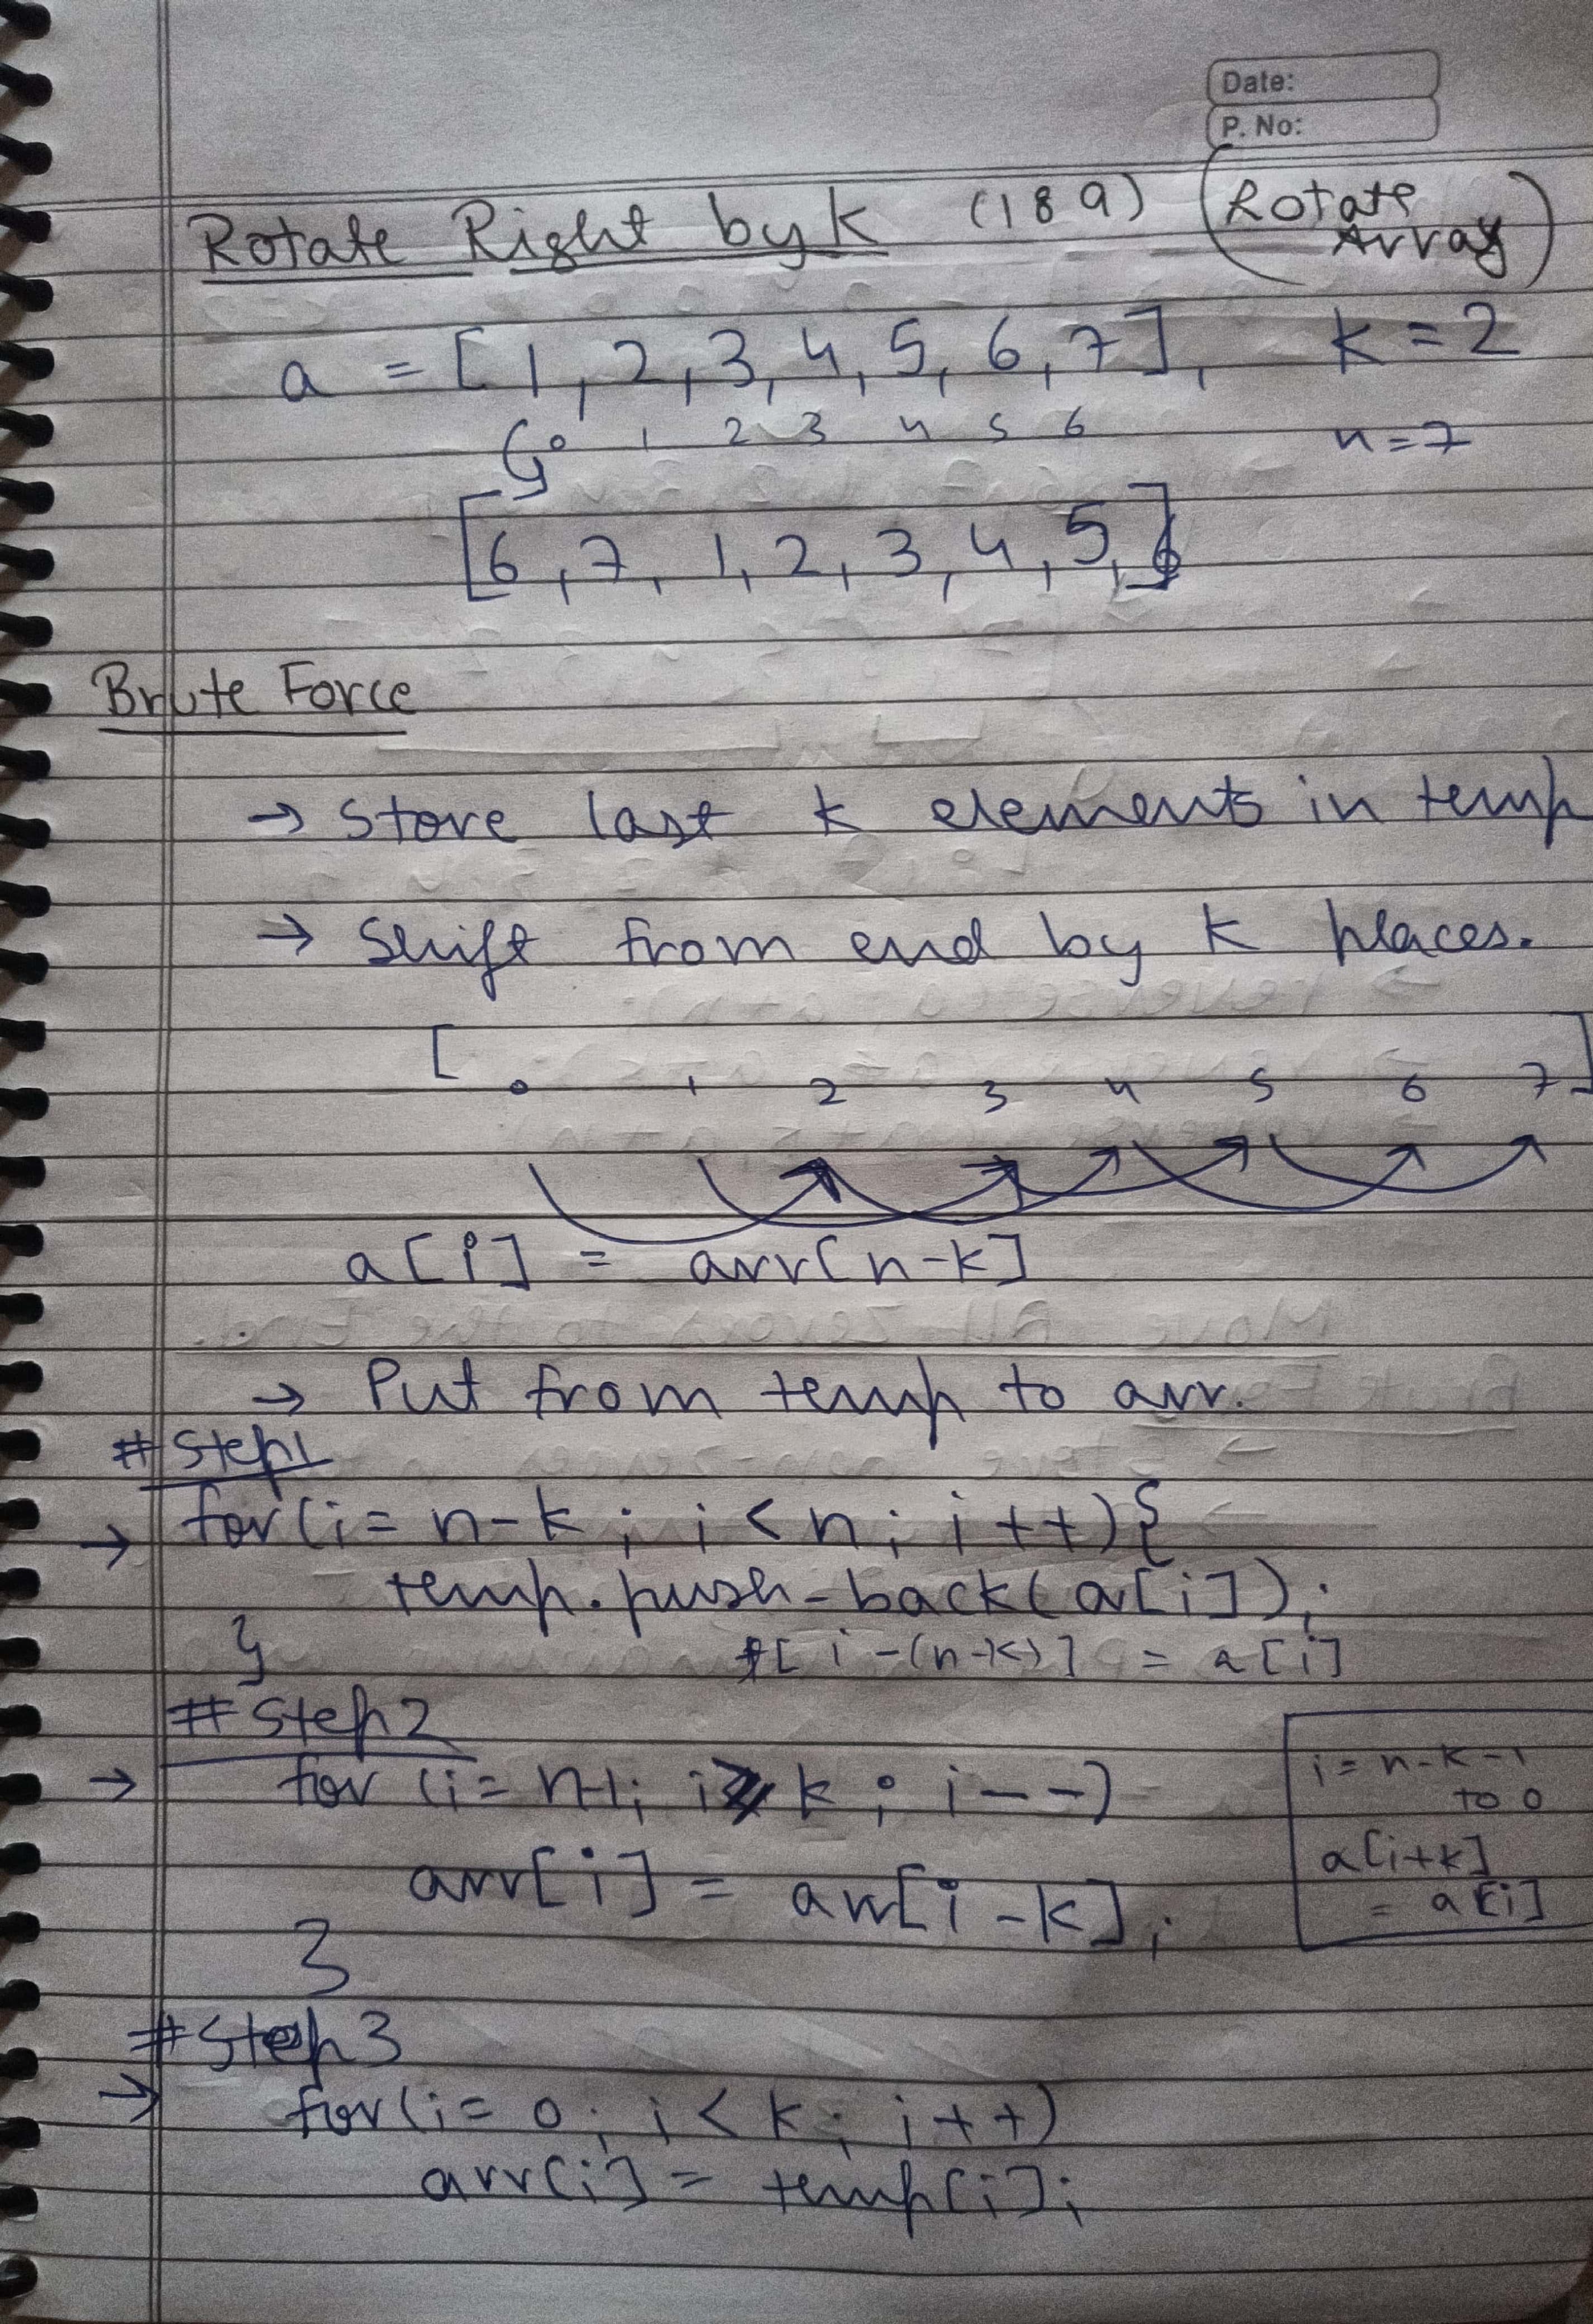 Date:
P. No:
Rotate Right by k (189) (Rotate Array)
a = [1, 2, 3, 4, 5, 6, 7], k = 2
0 1 2 3 4 5 6 n = 7
[6, 7, 1, 2, 3, 4, 5,]
Brute Force
→ Store last k elements in temp
→ Shift from end by k places.
[ 0 1 2 3 4 5 6 7 ]
a[i] = arr[n-k]
→ Put from temp to arr.
# Step1
→ for(i = n-k ; i < n ; i++){
temp.push-back(a[i]);
}
t[i-(n-k)] = a[i]
# Step2
→ for (i = n-1; i >= k ; i--)
arr[i] = arr[i-k];
}
i = n-k-1
to 0
a[i+k]
= a[i]
# Step3
→ for(i = 0 ; i < k ; i++)
arr[i] = temp[i];